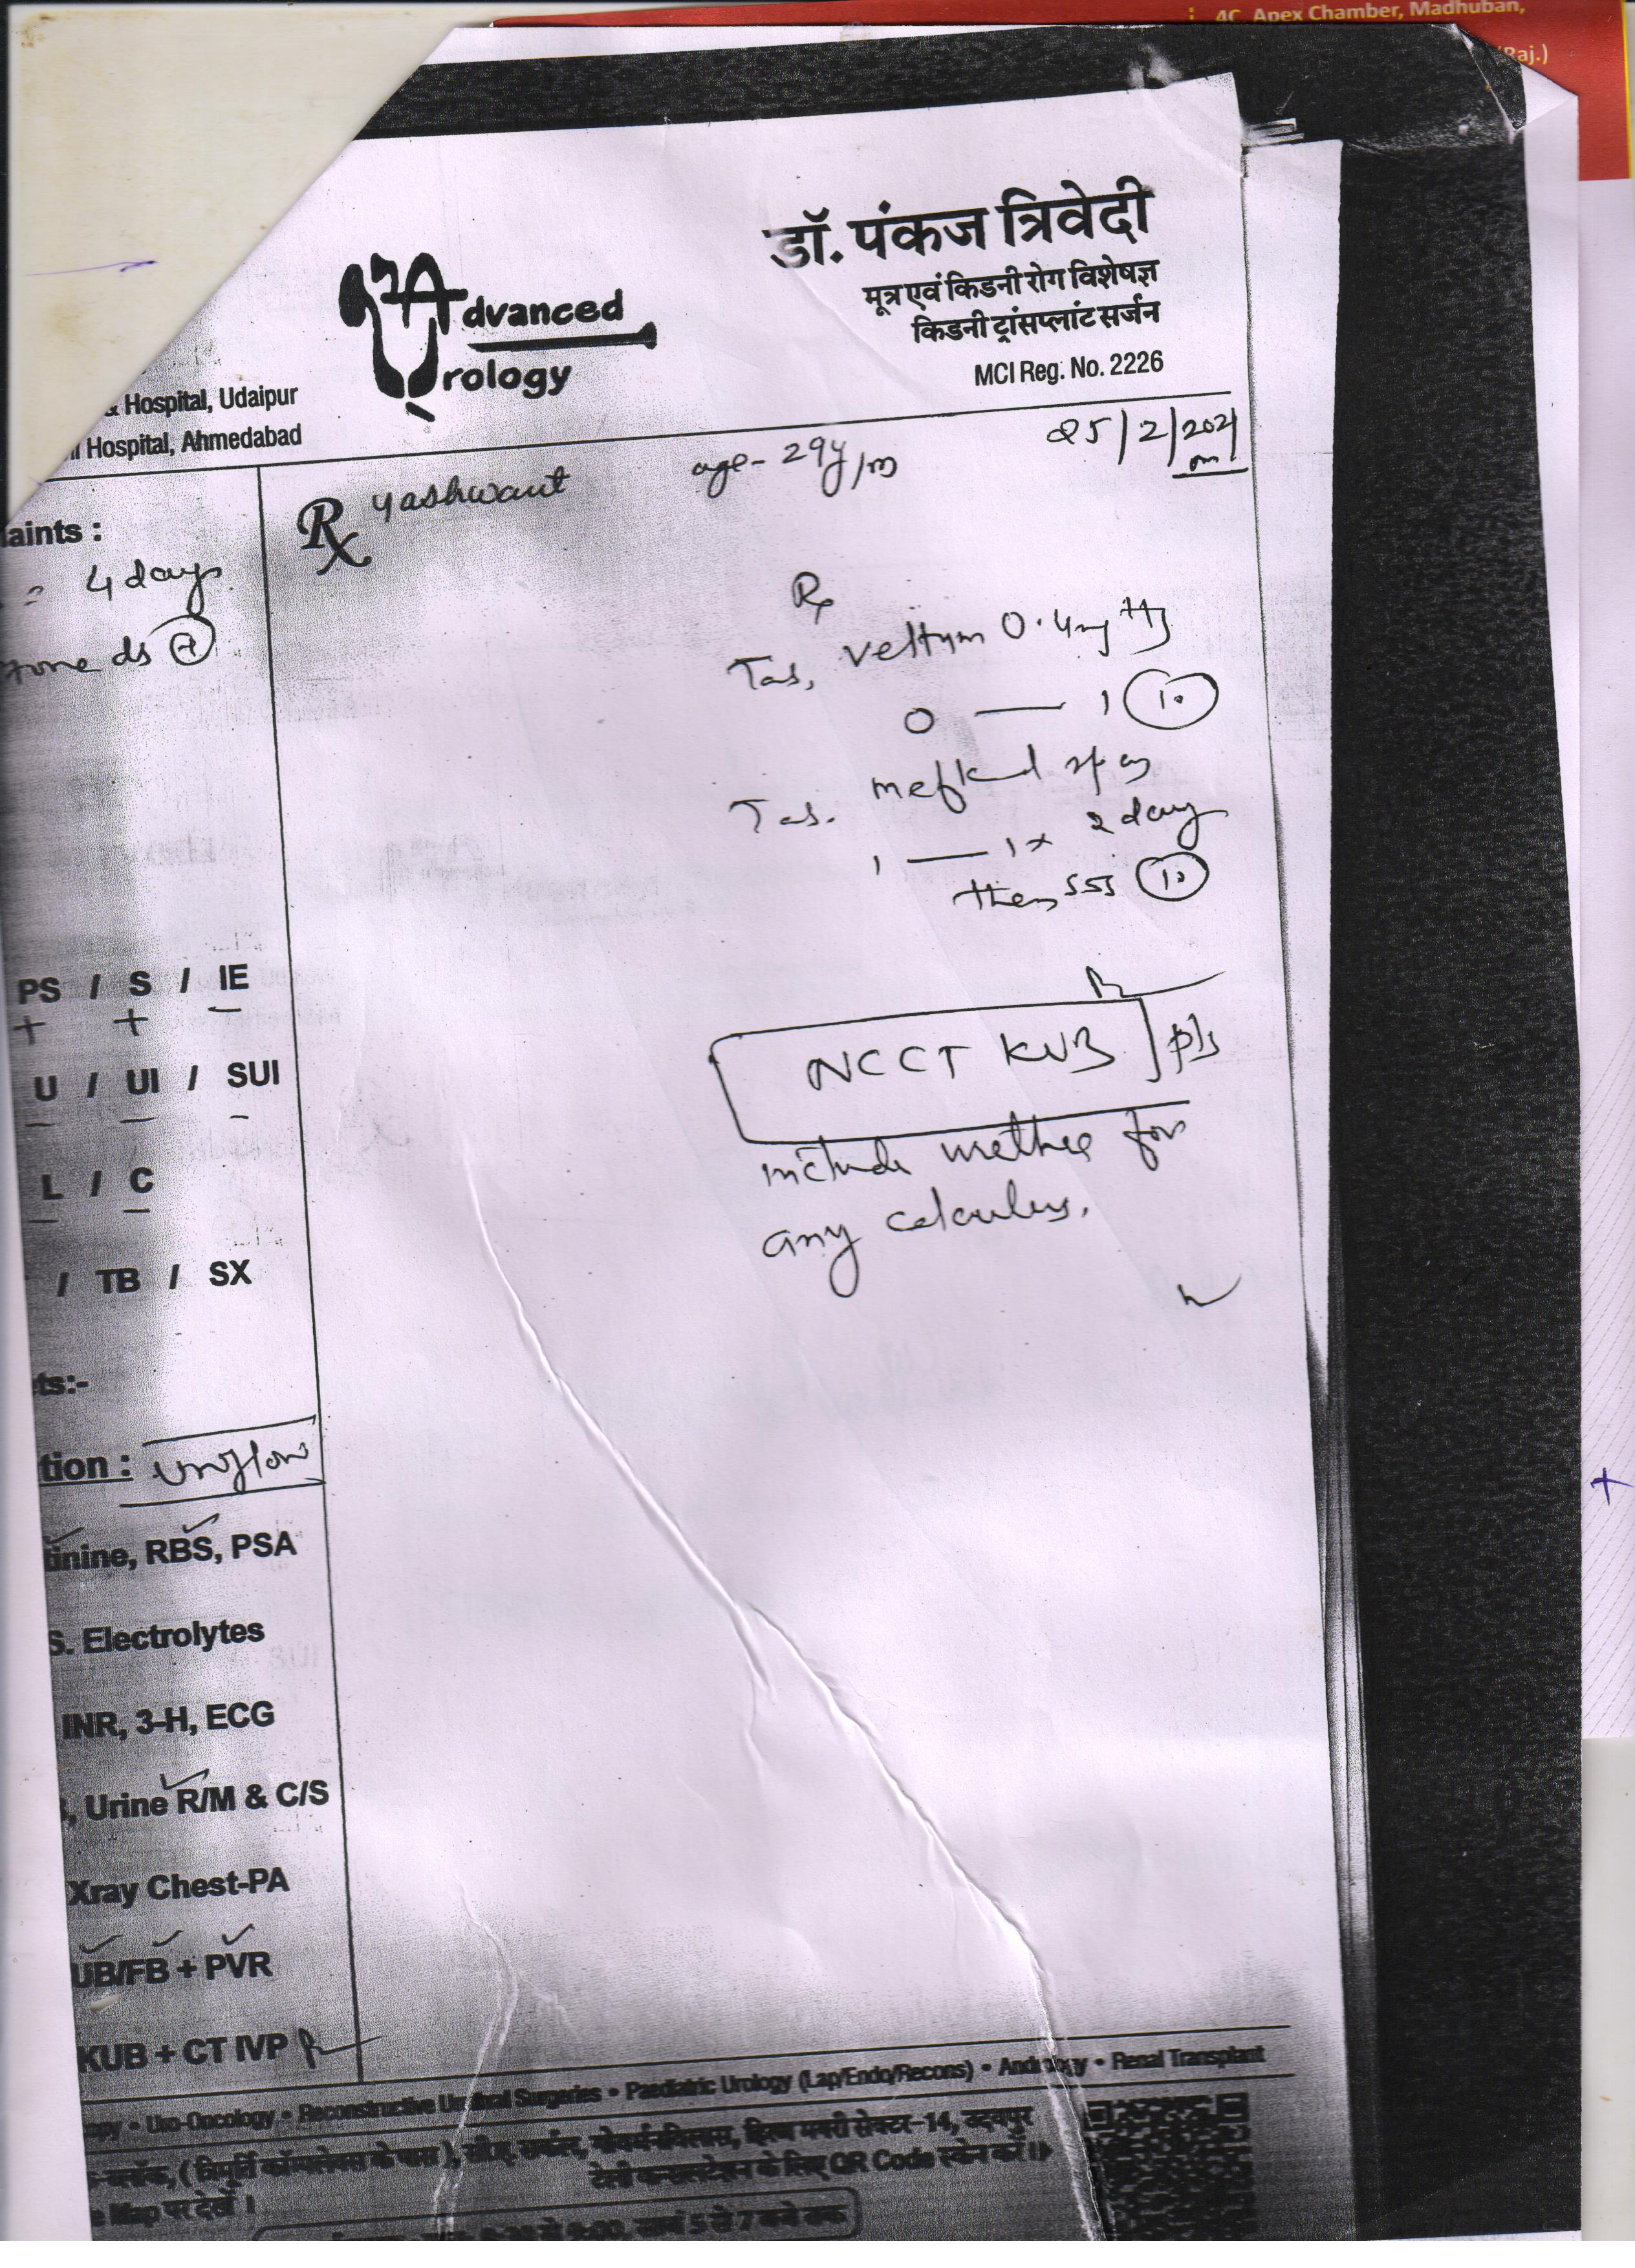 : 4C, Apex Chamber, Madhuban,
(Raj.)
डॉ. पंकज त्रिवेदी
मूत्र एवं किडनी रोग विशेषज्ञ
किडनी ट्रांसप्लांट सर्जन
MCI Reg. No. 2226
Advanced
Urology
& Hospital, Udaipur
Hospital, Ahmedabad
25/2/2021
Rx yashwant age - 29y/m
laints :
= 4 days
tone ds +
Rx
Tab. 0.4mg
0 — 1 (10)
Tab. meftal spas
1 — 1 x 2 day
then SOS (10)
NCCT KUB pls
include urethra for
any calculus.
PS / S / IE
+ + -
U / UI / SUI
- - -
L / C
- -
/ TB / SX
ts:-
tion : uroflow
tinine, RBS, PSA
S. Electrolytes
INR, 3-H, ECG
, Urine R/M & C/S
Xray Chest-PA
UB/FB + PVR
KUB + CT IVP
opy • Uro-Oncology • Reconstructive Urethral Surgeries • Paediatric Urology (Lap/Endo/Recons) • Andrology • Renal Transplant
ब्लॉक, ( त्रिमूर्ति कॉम्पलेक्स के पास ), सी.ए. सर्कल, गोवर्धनविलास, हिरण मगरी सेक्टर-14, उदयपुर
टेली कन्सलटेशन के लिए QR Code स्केन करें।
e Map पर देखें ।
से 9:00, सायं 5 से 7 बजे तक